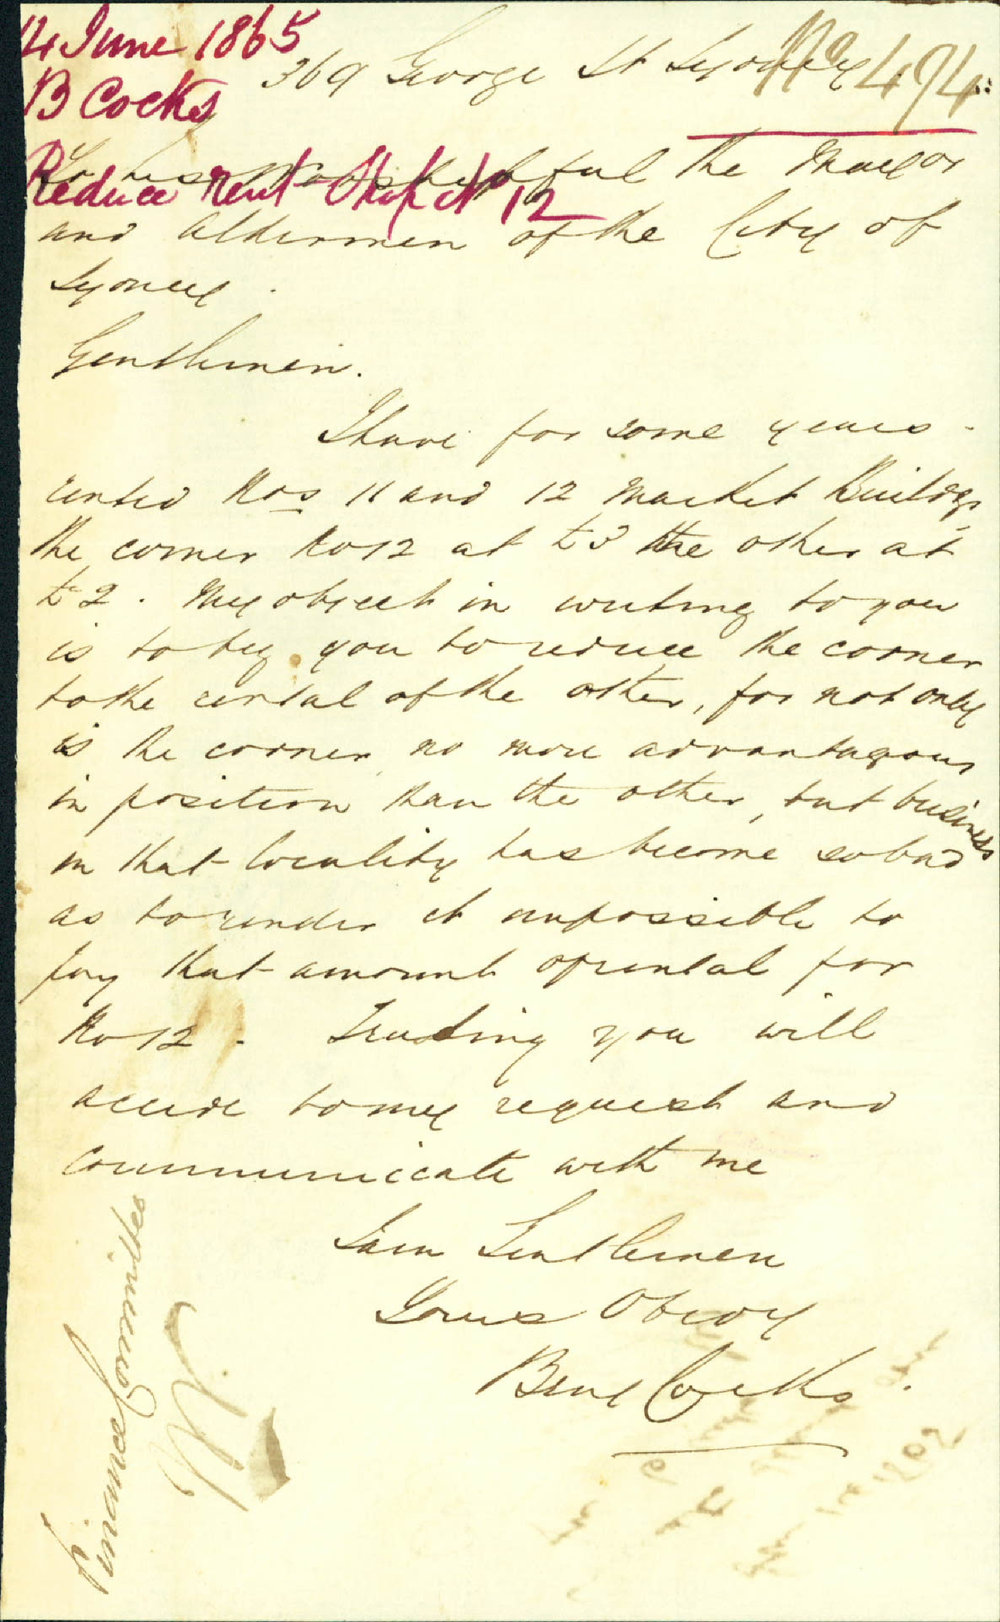 14 June 1865
B Cocks
Reduce rent Shop No 12
No 494
369 George St Sydney
To his Worshipful the Mayor
and Aldermen of the City of
Sydney.
Gentlemen.
I have for some years
rented Nos 11 and 12 Market Buildgs
the corner No 12 at £3 the other at
£2. My object in writing to you
is to beg you to reduce the corner
to the rental of the other, for not only
is the corner no more advantageous
in position than the other, but business
in that locality has become so bad
as to render it impossible to
pay that amount of rental for
No 12. Trusting you will
accede to my request and
communicate with me
I am Gentlemen
Yours Obedy
Benj Cocks.
Finance Committee